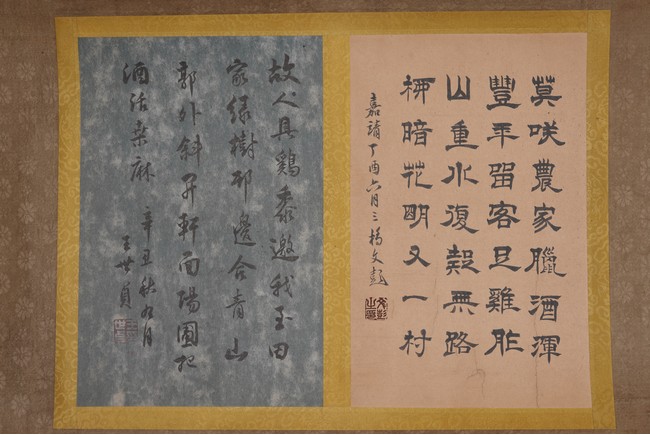 莫咲農家臘酒渾
豐年留客足雞豚
山重水復疑無路
柳暗花明又一村
嘉靖丁酉六月三橋文彭
文彭之印
故人具鷄黍邀我至田
家緑樹邨邊合青山
郭外斜開軒面場圃把
酒話桑麻
辛丑秋九月
王世貞